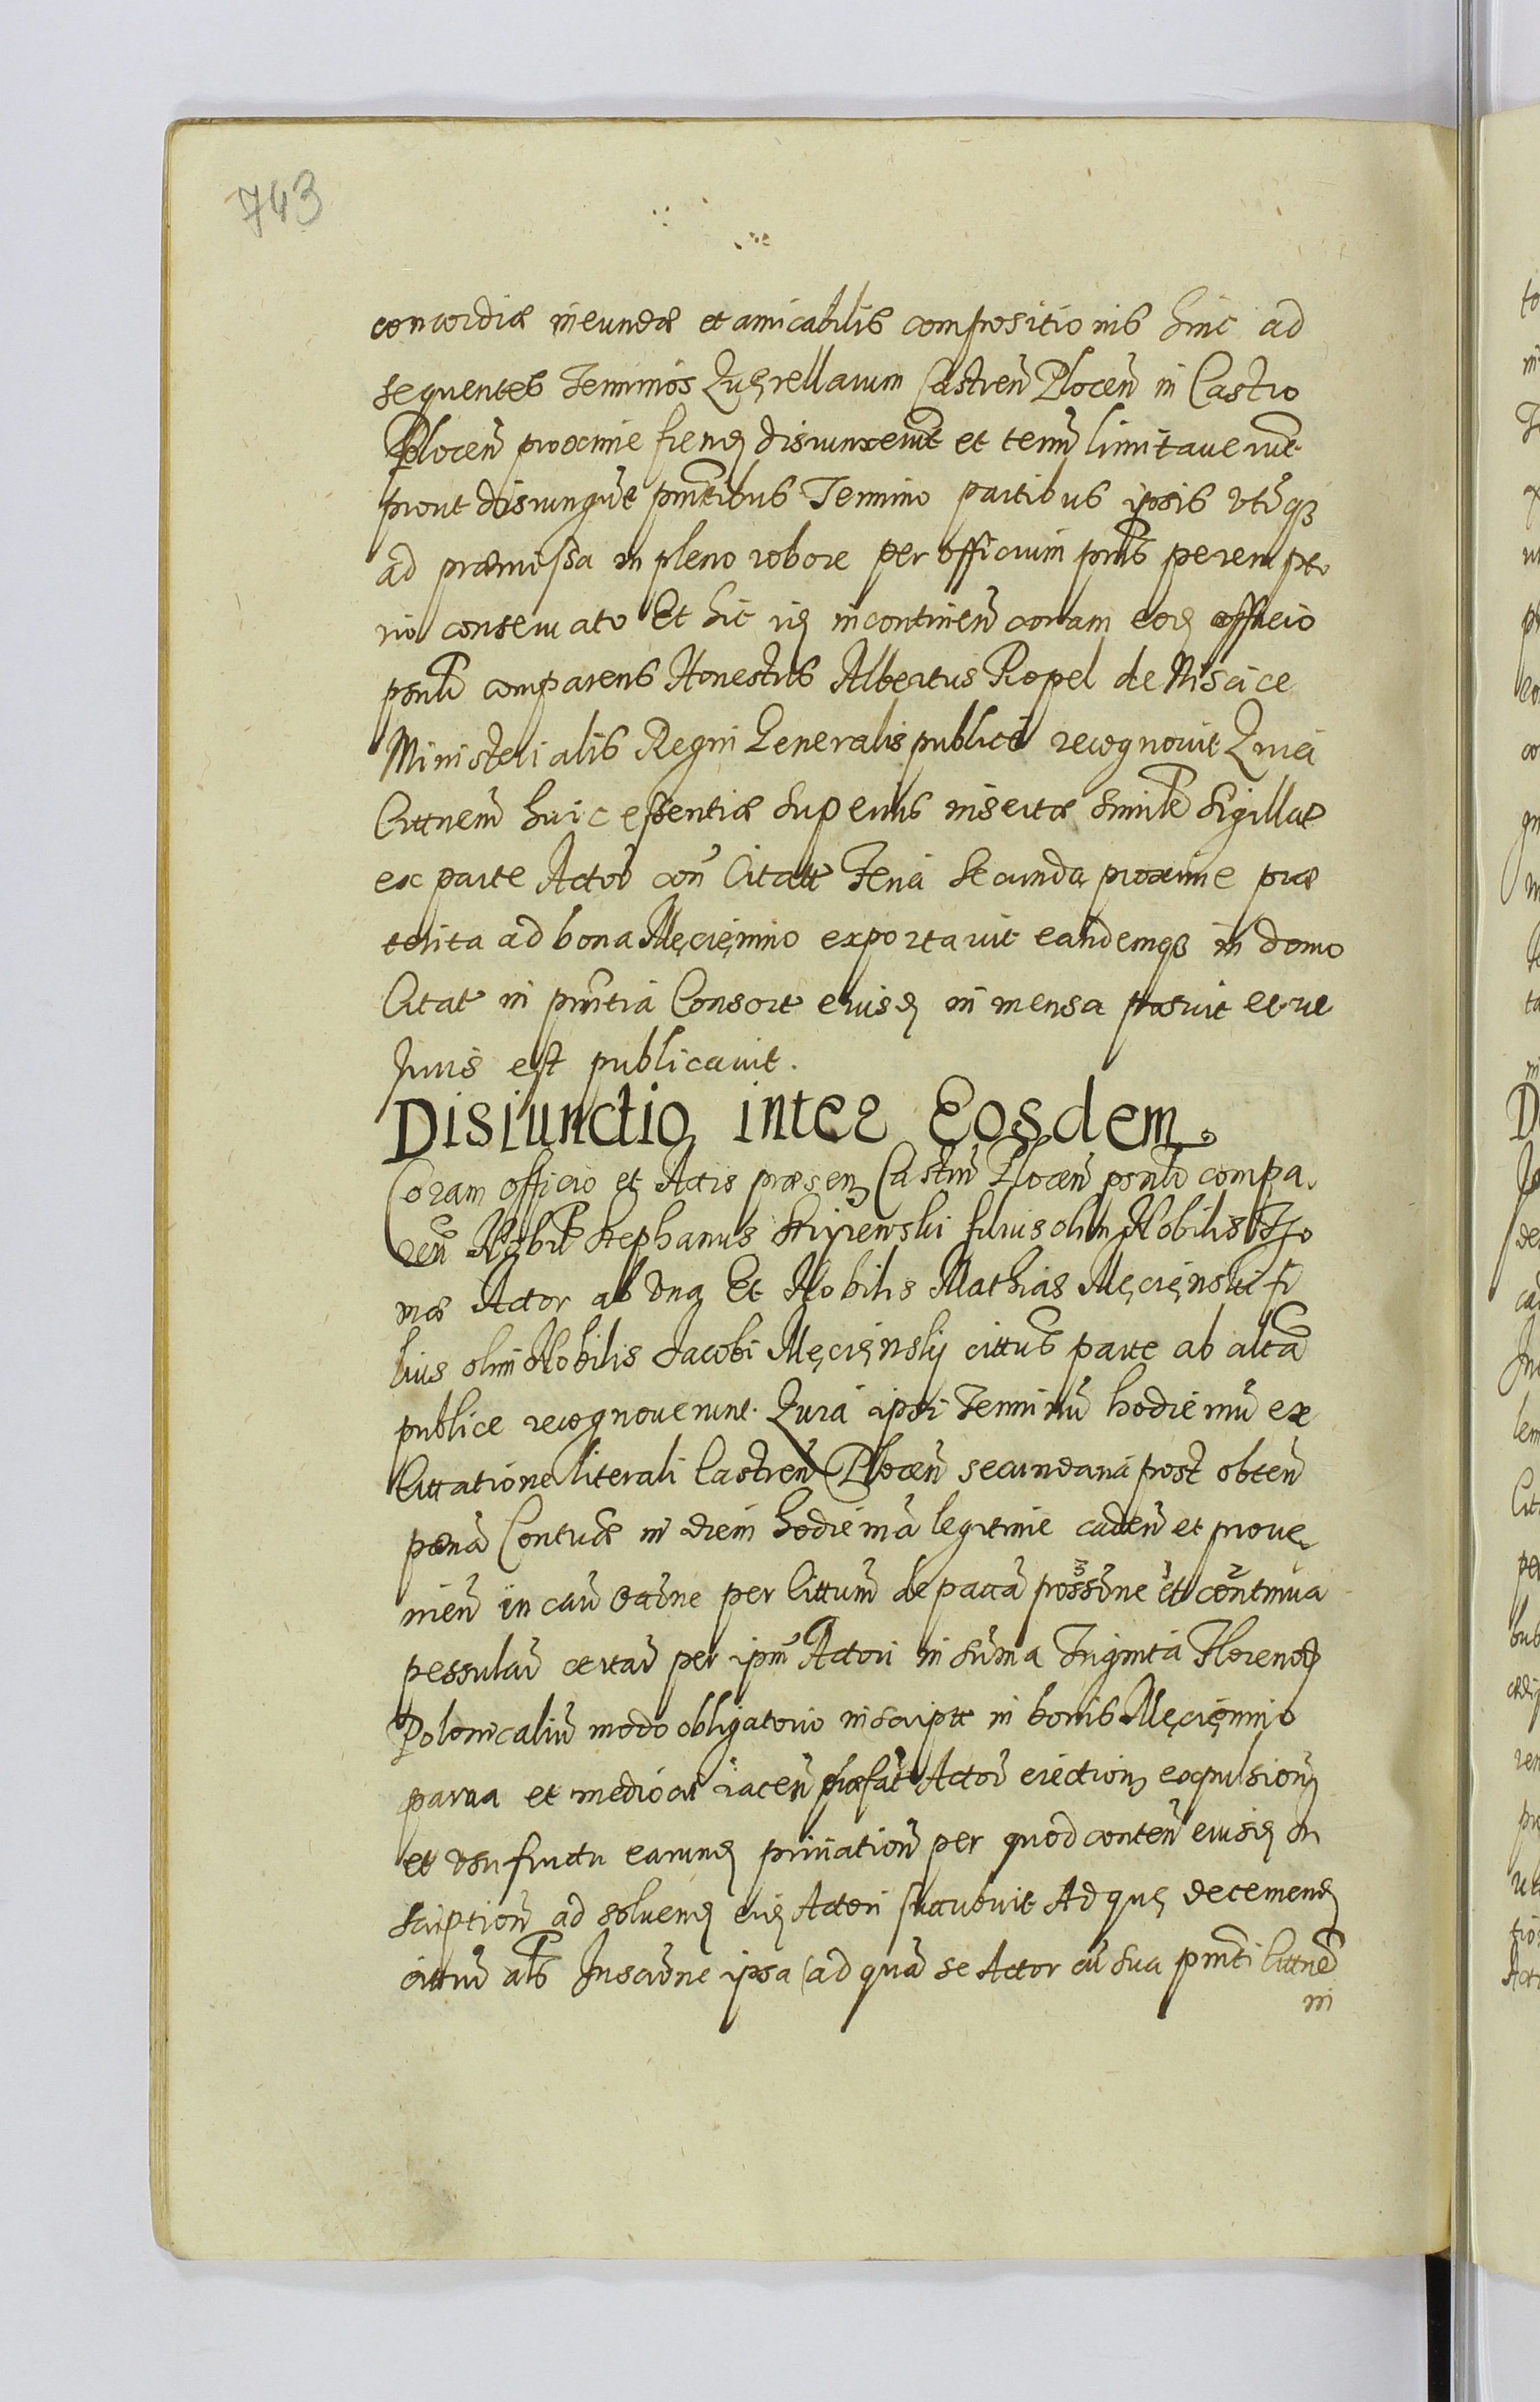 743
concordiæ ineundæ et amicabilis compositionis hinc ad
sequentes Terminos Querellarum Castren̄ Plocen̄ in Castro
Plocen̄ proxime fien̄ disiunxerūt et term̄ limitauerūt
prout disiungūt pn̄tibus Termino partibus ipsis vtrīq̨
ad præmissa in pleno robore per officium pn̄s perempto
rio conseruato Et hic iiḍ incontinen̄ coram eoḍ officio
psnlr̄ comparens Honestus Albertus Ropel de Niscice
Ministerialis Regni Generalis publice recognouit Quia
Cittnem̄ huic essentiæ superius insertæ similē Sigillat
ex parte Actor̄ con̄ Citatt Feria Secunda proxime præ
terita ad bona Męcięmino exportauit eandemq̨ in domo
Citat in pn̄tia Consort eiusḍ in mensa posuit et vt
Juris est publicauit.
Disiunctio inter Eosdem.
Coram officio et Actis præsen̨ Castrn̄ Plocen̄ psnlr̄ compa.
ren̄ Nobīl Stephanus filius olim Nobilis Tho
mæ Actor ab vna Et Nobilis Mathias Męcięnski fi
lius olim Nobilis Jacobi Męcięnskij cittus parte ab altā
publice recognouerunt. Quia ipsi Terminū hodiernū ex
Cittatione literali Castren̄ Plocen̄ secundaria post obten̄
pœnā Contuæ in diem hodiernā legitime caden̄ et proue
nien̄ in cau̅ per Cittum̄ de pacta possōne et continua
pessular̄ certar̄ per ipm̄ Actori in summa Triginta Floreno
Polonicaliū modo obligatorio inscriptt in bonis Męcięmino
parua et mediocri iacen̄ præfat̄ Actor̄ eiection̨ expulsion̨
et vsufructu earunḍ priuation̄ per quod conten̄ eiusḍ in
scription̄ ad soluenḍ eiḍ Actori succubuit Ad quę decernenḍ
cittum̄ als̄ Inscrōne ipsa (ad quā se Actor cū sua pn̄ti Cittnē
in